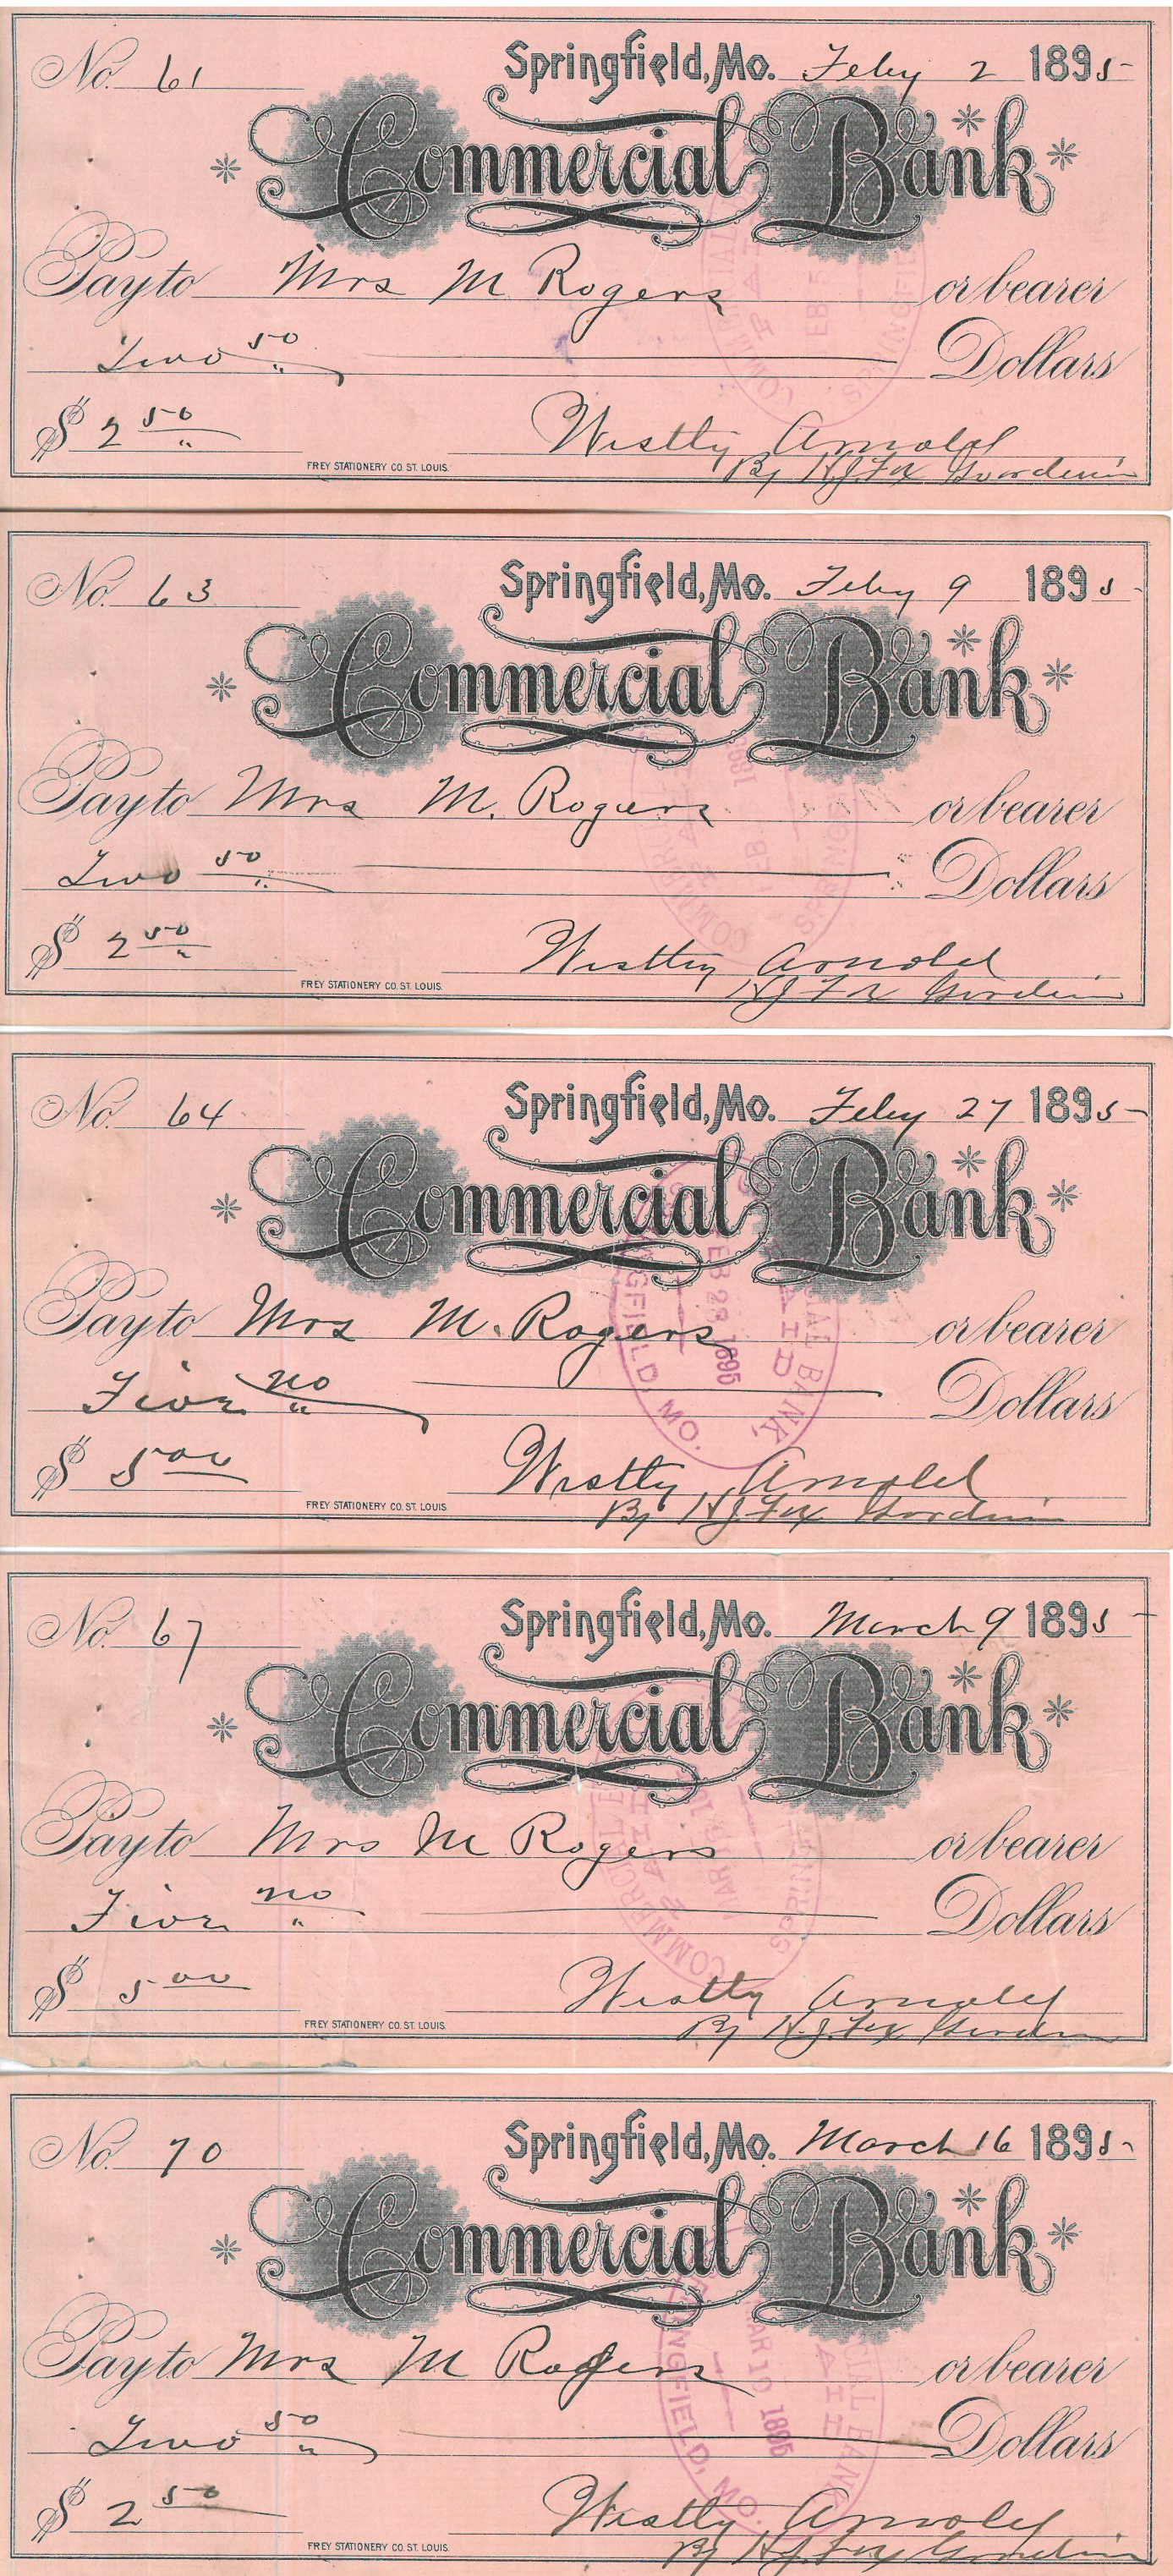 No. 61 Springfield, Mo. Feby 2 1895
Commercial Bank
Pay to Mrs M Rogers or bearer
Two 50 Dollars
$ 2 50
Westly Arnold
FREY STATIONERY CO. ST. LOUIS.
By H.J. Fox
No. 63 Springfield, Mo. Feby 9 1895
Commercial Bank
Pay to Mrs M. Rogers or bearer
Two 50 Dollars
$ 2 50
Westly Arnold
FREY STATIONERY CO. ST. LOUIS.
HJ Fox
No. 64 Springfield, Mo. Feby 27 1895
Commercial Bank
FEB 28 1895
Pay to Mrs M. Rogers or bearer
Five no Dollars
SPRINGFIELD, MO.
COMMERCIAL BANK
PAID
$ 5 00
Westly Arnold
FREY STATIONERY CO. ST. LOUIS
By HJ Fox
No. 67 Springfield, Mo. March 9 1895
Commercial Bank
Pay to Mrs M Rogers or bearer
Five no Dollars
$ 5 00
Westly Arnold
FREY STATIONERY CO. ST. LOUIS.
By H.J. Fox
No. 70 Springfield, Mo. March 16 1895
Commercial Bank
MAR 19 1895
Pay to Mrs M Rogers or bearer
Two 50 Dollars
SPRINGFIELD, MO.
COMMERCIAL BANK
PAID
$ 2 50
Westly Arnold
FREY STATIONERY CO. ST. LOUIS.
By HJ Fox